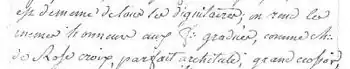 est de meme de tous les dignitaires; on rend les
memes honneurs aux gradués, comme
de Rose croix, parfait architecte, grand ecossois,